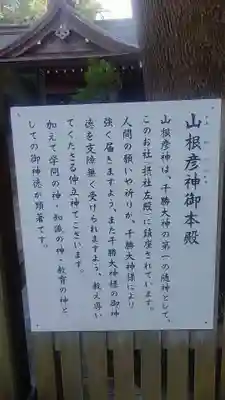 山根彦神御本殿
山根彦神は、千勝大神の第一の随神として、
このお社(摂社左殿)に鎮座されています。
人間の願いや祈りが、千勝大神様により
強く届きますよう、また千勝大神様の御神
徳を支障無く受けられますよう、教え導い
てくださる仲立神でございます。
加えて学問の神・知識の神・教育の神と
しての御神徳が顕著です。